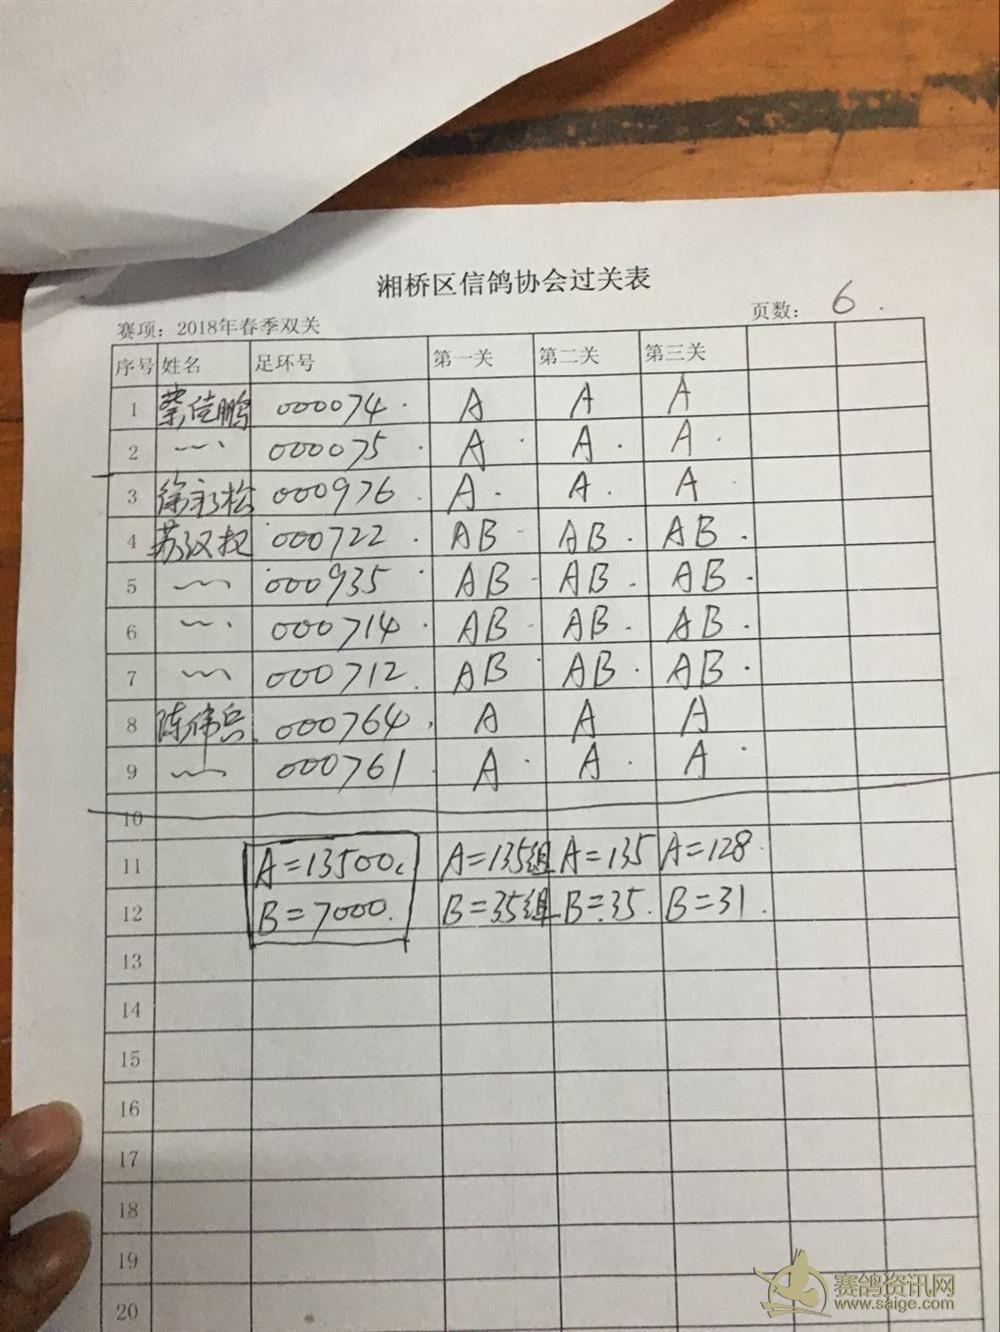 湘桥区信鸽协会过关表
赛项：2018年春季双关 页数： 6.
序号 姓名 足环号 第一关 第二关 第三关
1 蔡佳鹏 000074 A A A
2 〃 000075 A A A
3 徐主松 000976 A A A
4 苏汉权 000722 AB AB AB
5 〃 000935 AB AB AB
6 〃 000714 AB AB AB
7 〃 000712 AB AB AB
8 陈伟兵 000764 A A A
9 〃 000761 A A A
10
11 A=13500 A=135组 A=135 A=128
12 B=7000 B=35组 B=35 B=31
13
14
15
16
17
18
19
20
赛鸽资讯网
www.saige.com